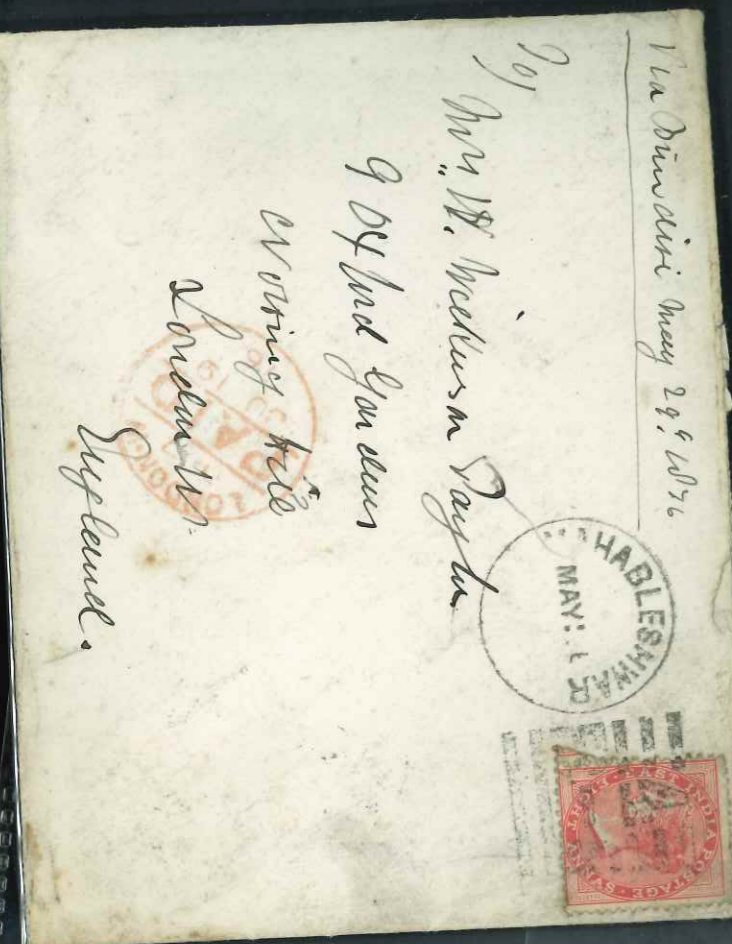 Via Brindisi May 29th 1876
To/
Mrs W. Wilkinson Taylor
9 Oxford Gardens
Notting Hill
London W.
England.
MAHABLESHWAR
MAY
LONDON
PAID
EAST INDIA POSTAGE
EIGHT ANNAS